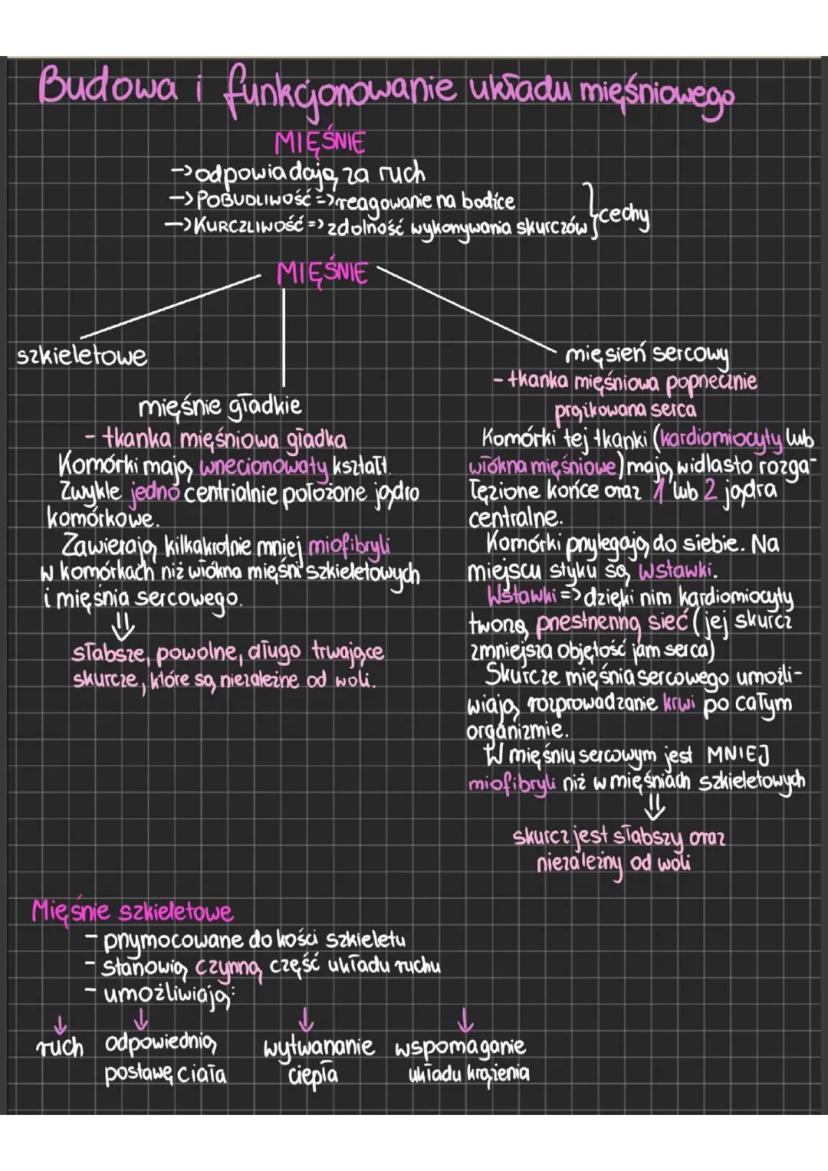 Budowa i funkcjonowanie układu mięśniowego
MIĘŚNIE
->odpowiadają za ruch
->POBUDLIWOŚĆ=>reagowanie na bodźce
->KURCZLIWOŚĆ=>zdolność wykonywania skurczów
}cechy
MIĘŚNIE
szkieletowe
mięśnie gładkie
- tkanka mięśniowa gładka
Komórki mają wnecionowaty kształt.
Zwykle jedno centrialnie położone jądro
komórkowe.
Zawierają kilkakrotnie mniej miofibryli
w komórkach niż włókna mięśni szkieletowych
i mięśnia sercowego.
⇓
słabsze, powolne, długo trwające
skurcze, które są niezależne od woli.
mięsień sercowy
- tkanka mięśniowa poprzecznie
prążkowana serca
Komórki tej tkanki (kardiomiocyty lub
włókna mięśniowe) mają widlasto rozga-
łęzione końce oraz 1 lub 2 jądra
centralne.
Komórki przylegają do siebie. Na
miejscu styku są wstawki.
Wstawki=>dzięki nim kardiomiocyty
tworzą przestrzenną sieć (jej skurcz
zmniejsza objętość jam serca)
Skurcze mięśnia sercowego umożli-
wiają rozprowadzanie krwi po całym
organizmie.
W mięśniu sercowym jest MNIEJ
miofibryli niż w mięśniach szkieletowych
⇓
skurcz jest słabszy oraz
niezależny od woli
Mięśnie szkieletowe
- przymocowane do kości szkieletu
- stanowią czynną część układu ruchu
- umożliwiają:
↓ ↓ ↓ ↓
ruch odpowiednią wytwarzanie wspomaganie
postawę ciała ciepła układu krążenia